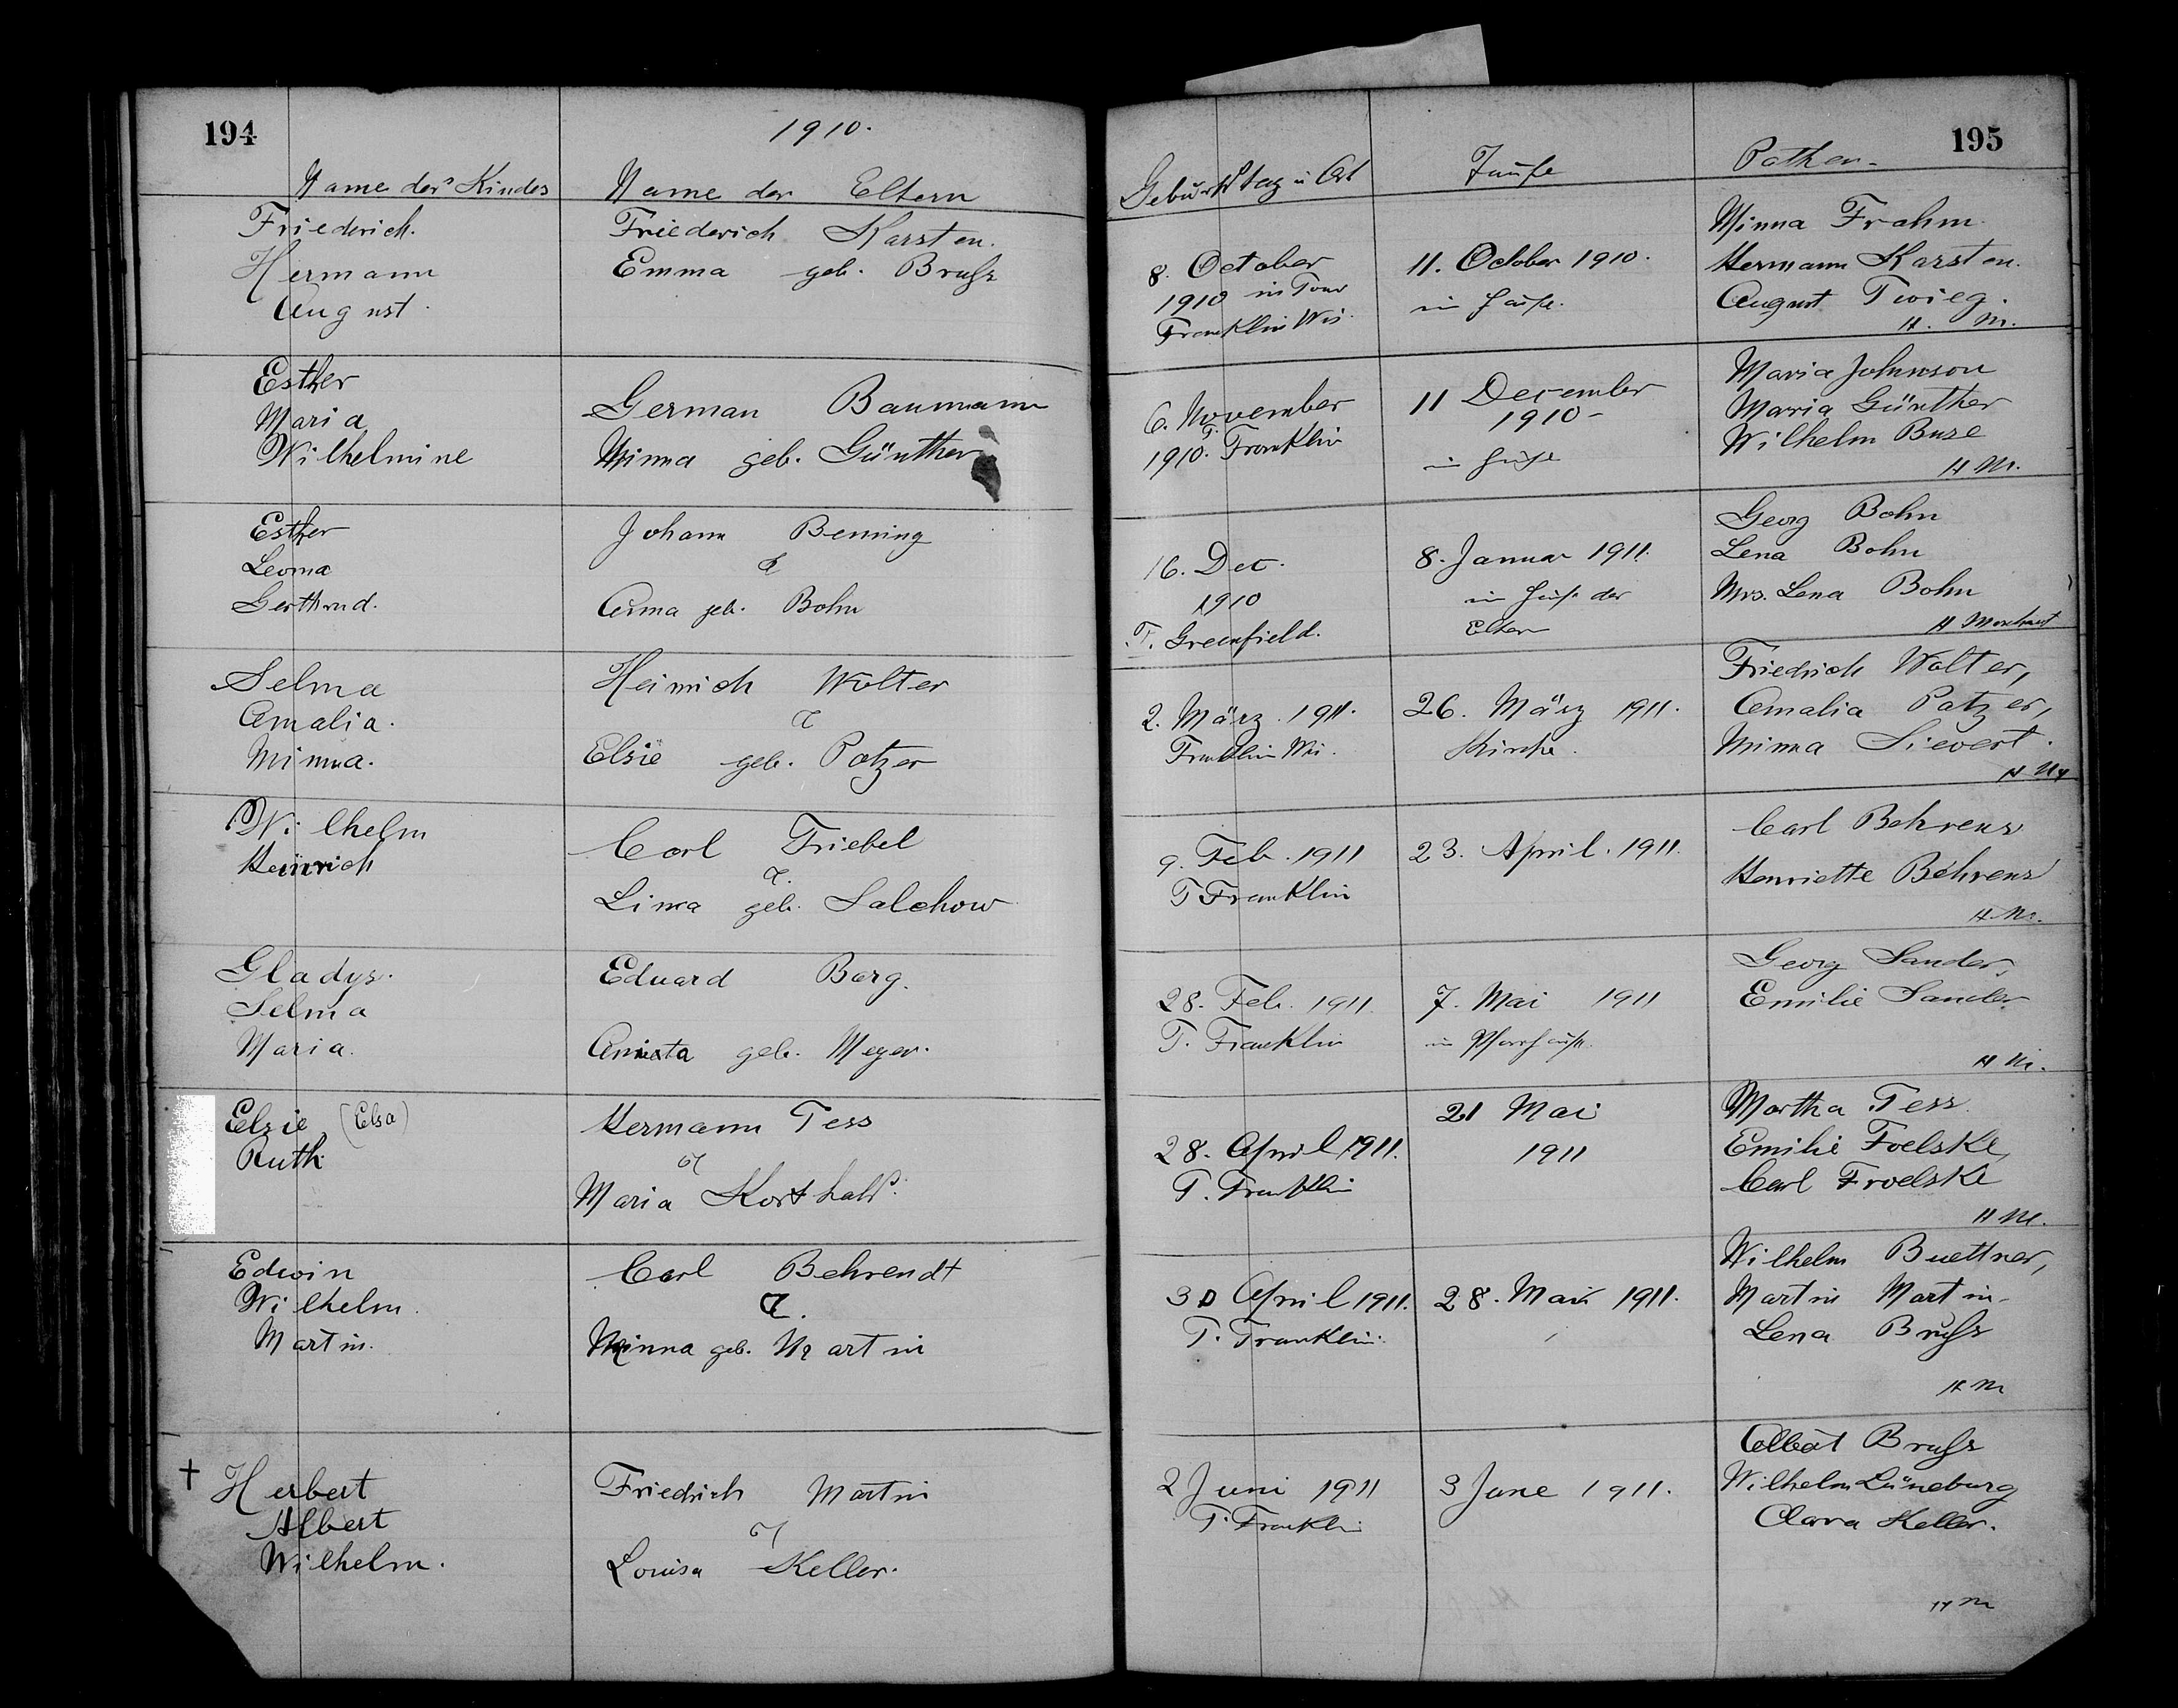 194
1910.
Name des Kindes
Name der Eltern
Friederich.
Hermann
August.
Friederich Karsten.
Emma geb. Bruss
Esther
Maria
Wilhelmine
German Baumann
Minna geb. Günther
Esther
Leona
Gerthrud.
Johann Benning
&
Anna geb. Bohn
Selma
Amalia.
Minna.
Heinrich Wolter
&
Elsie geb. Patzer
Wilhelm
Heinrich
Carl Friebel
&.
Lina geb. Salchow
Gladys.
Selma
Maria.
Eduard Barg.
geb. Meyer.
Elsie (Elsa)
Ruth
Hermann Tess
&
Maria Korthals.
Edwin
Wilhelm.
Martin.
Carl Behrendt
&.
Minna geb. Martin
† Herbert
Albert
Wilhelm.
Friedrich Martin
&
Louisa Keller.
195
Geburtstag u Ort
Taufe
Pathen.
8. October
1910 in Town
Franklin Wis.
11. October 1910.
im Hause.
Minna Frahm
Hermann Karsten.
August Twieg.
H. M.
6. November
1910. T. Franklin
11 December
1910-
im Hause
Maria Johnson
Maria Günther
Wilhelm Buse
H M.
16. Dec.
1910
T. Greenfield.
8. Januar 1911.
im Hause der
Eltern
Georg Bohn
Lena Bohn
Mrs. Lena Bohn
H
2. März. 1911.
Franklin Wis.
26. März 1911.
Kirche.
Friedrich Wolter,
Amalia Patzer,
Minna Sievert.
H M
9. Feb. 1911
T Franklin
23. April. 1911.
Carl Behrens
Henriette Behrens
H M.
28. Feb. 1911.
T. Franklin
7. Mai 1911
im Pfarrhause.
Georg Sander,
Emilie Sander
H M.
28. April 1911.
T. Franklin
21 Mai
1911
Martha Tess
Emilie Foelske,
Carl Froelske
H M.
30 April 1911.
T. Franklin.
28. Mai 1911.
Wilhelm Buettner,
Martin Martin
Lena Bruss
H M
2 Juni 1911
T. Franklin
3 June 1911.
Albert Bruss
Wilhelm Lüneburg
Clara Keller.
H M